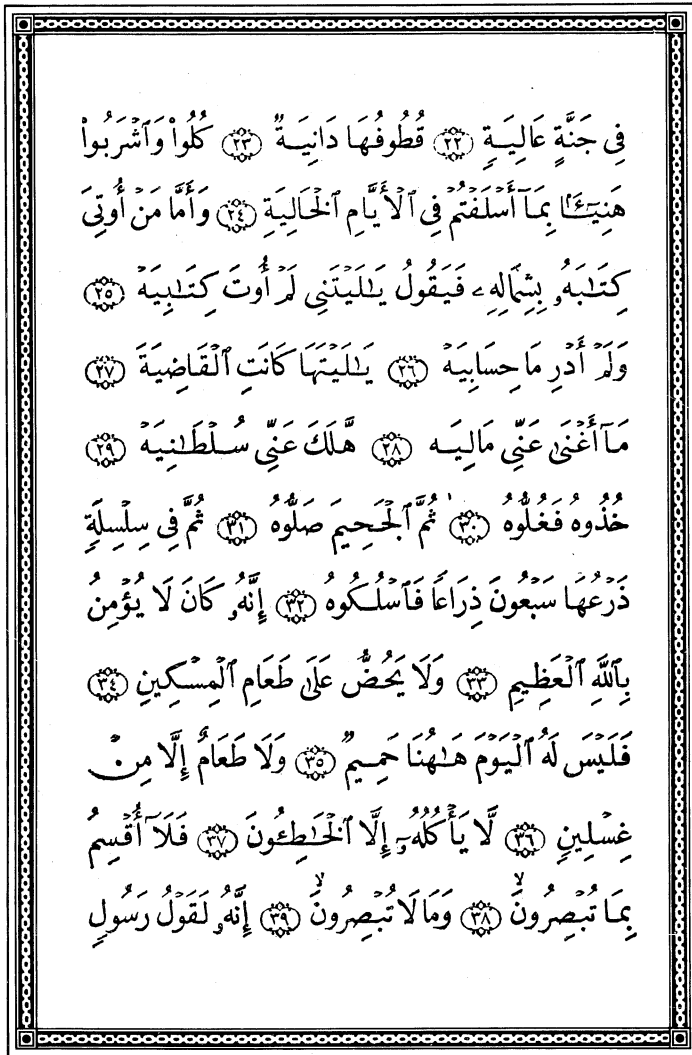 فِي جَنَّةٍ عَالِيَةٍ ٢٢ قُطُوفُهَا دَانِيَةٌ ٢٣ كُلُوا۟ وَٱشْرَبُوا۟
هَنِيٓـًٔۢا بِمَآ أَسْلَفْتُمْ فِي ٱلْأَيَّامِ ٱلْخَالِيَةِ ٢٤ وَأَمَّا مَنْ أُوتِيَ
كِتَٰبَهُۥ بِشِمَالِهِۦ فَيَقُولُ يَٰلَيْتَنِي لَمْ أُوتَ كِتَٰبِيَهْ ٢٥
وَلَمْ أَدْرِ مَا حِسَابِيَهْ ٢٦ يَٰلَيْتَهَا كَانَتِ ٱلْقَاضِيَةَ ٢٧
مَآ أَغْنَىٰ عَنِّي مَالِيَهْ ٢٨ هَّلَكَ عَنِّي سُلْطَٰنِيَهْ ٢٩
خُذُوهُ فَغُلُّوهُ ٣٠ ثُمَّ ٱلْجَحِيمَ صَلُّوهُ ٣١ ثُمَّ فِي سِلْسِلَةٍ
ذَرْعُهَا سَبْعُونَ ذِرَاعًا فَٱسْلُكُوهُ ٣٢ إِنَّهُۥ كَانَ لَا يُؤْمِنُ
بِٱللَّهِ ٱلْعَظِيمِ ٣٣ وَلَا يَحُضُّ عَلَىٰ طَعَامِ ٱلْمِسْكِينِ ٣٤
فَلَيْسَ لَهُ ٱلْيَوْمَ هَٰهُنَا حَمِيمٌ ٣٥ وَلَا طَعَامٌ إِلَّا مِنْ
غِسْلِينٍ ٣٦ لَّا يَأْكُلُهُۥٓ إِلَّا ٱلْخَٰطِـُٔونَ ٣٧ فَلَآ أُقْسِمُ
بِمَا تُبْصِرُونَ ٣٨ وَمَا لَا تُبْصِرُونَ ٣٩ إِنَّهُۥ لَقَوْلُ رَسُولٍ